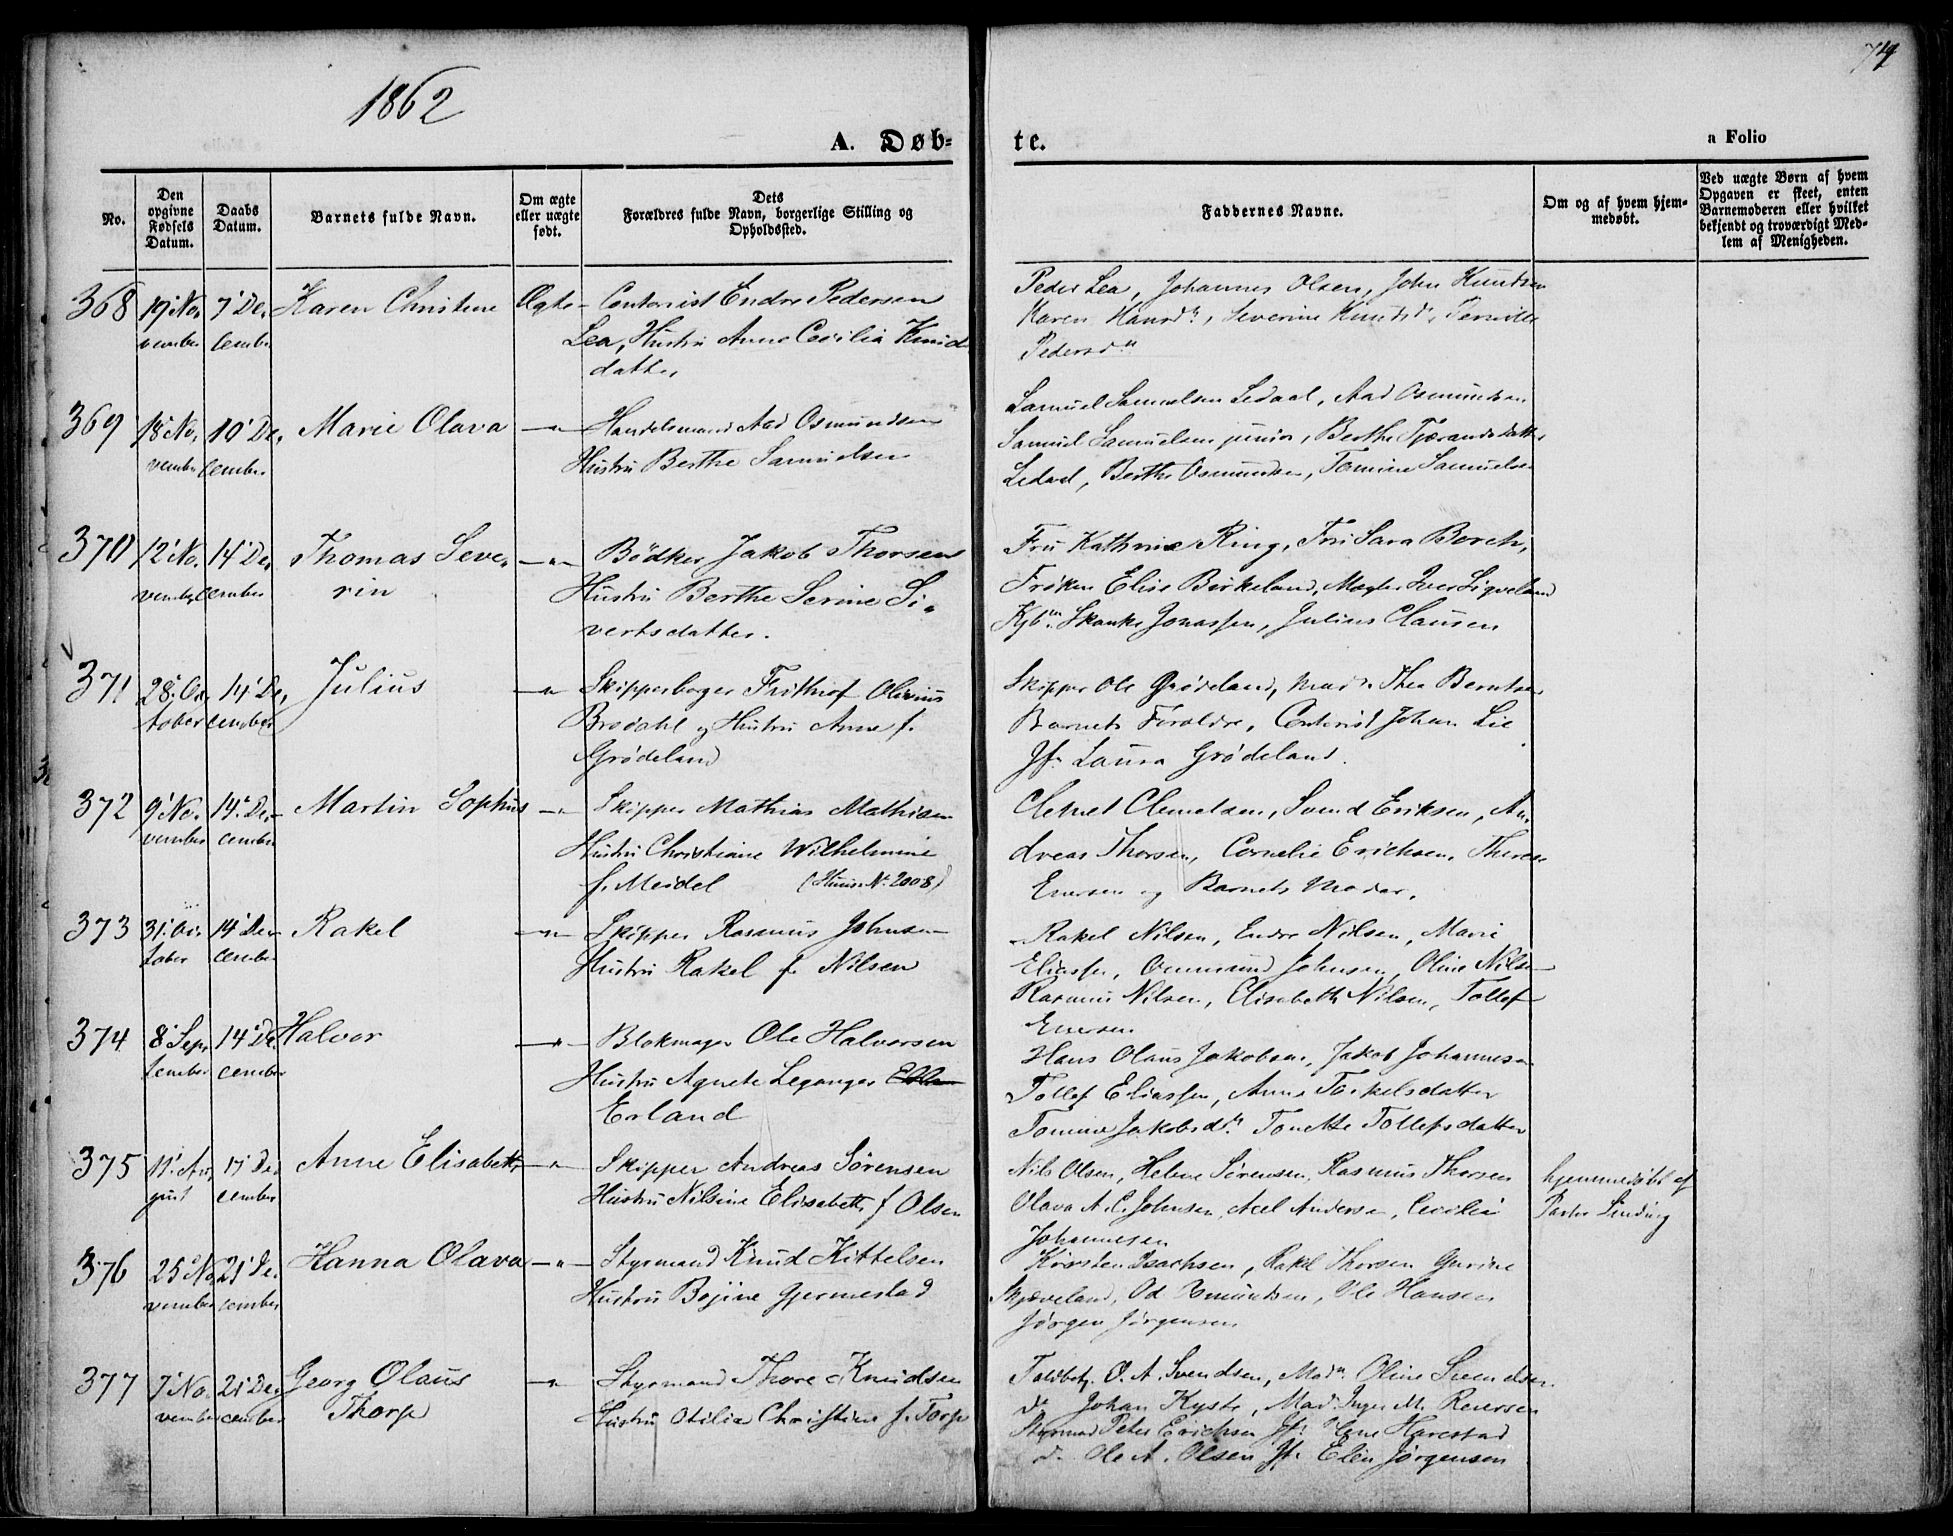 1862
74
A. Døb-
te.
a Folio
No.
Den opgivne Fødsels Datum.
Daabs Datum.
Barnets fulde Navn.
Om ægte eller uægte født.
Dets Forældres fulde Navn, borgerlige Stilling og Opholdssted.
Faddernes Navne.
Om og af hvem hjemmedøbt.
Ved uægte Børn af hvem Opgaven er skeet, enten Barnemoderen eller hvilket bekjendt og troværdigt Medlem af Menigheden.
368 19' No. 7' De. Karen Christine Ægte - Contorist Endre Pedersen
vember cember Lea, Hustru Anne Cecilia Knuds
datter
Peder Lea, Johannes Olsen, John Knudsen
Karen Hansd., Severine Knudsd., Pernille
Pedersd.
369 18' No. 10' De. Marie Olava -"- Handelsmand Aad Osmundsen
vember cember Hustru Berthe Samuelsen
Samuel Samuelsen Ledaal, Aad Osmundsen
Samuel Samuelsen junior, Berthe Tjerandsdatter
Ledaal, Berthe Osmundsen, Tomine Samuelsen
370 12' No. 14' De. Thomas Seve- -"- Bödker Jakob Thorsen
vember cember rin Hustru Berthe Serine Si-
vertsdatter.
Fru Kathrine Ring, Fru Sara Berch,
Frøken Elise Birkeland, Iver Sigveland
Kjbm. Skanke Jonassen, Julius Clausen
371 28' Oc. 14' De. Julius -"- Skipperborger Frithiof Olivius
tober cember Bredahl og Hustru Anne f.
Grødeland
Skipper Ole Grødeland, Mad. Thea Berntsen
Barnets Foraldre, Contorist Johan Lie
Jfr. Laura Grødeland.
372 9' No. 14' De- Martin Sophus -"- Skipper Mathias Mathisen
vember cember Hustru Christiane Wilhelmine
f. Meidel (Huus No. 2008)
Clemet Clemetsen, Svend Eriksen, An-
dreas Thorsen, Cornelie Erichsen, Therese
Enersen og Barnets Moder.
373 31' Oc. 14' De- Rakel -"- Skipper Rasmus Johnsen
tober cember Hustru Rakel f. Nilsen
Rakel Nilsen, Endre Nilsen, Marie
Eliassen, Ommund Johnsen, Oline Nilsen
Rasmus Nilsen, Elisabeth Nilsen, Tollef
Enersen
374 8' Sep. 14' De. Halvor -"- Blokmager Ole Halvorsen
tember cember Hustru Agnete Leganger
Erland
Hans Olaus Jakobsen, Jakob Johannesen
Tollef Eliassen, Anna Torkelsdatter
Tomine Jakobsd. Tonette Tollefsdatter
375 11' Au- 17' De- Anne Elisabeth -"- Skipper Andreas Sörensen
gust cember Hustru Nilsine Elisabeth f Olsen
Nils Olsen, Helene Sörensen, Rasmus Thorsen
Olava A. C. Johnsen, Axel Andersen, Cecilie
Johannesen
hjemmedøbt af
Pastor Sinding
376 25' No. 21' De. Hanna Olava -"- Styrmand Knud Kittelsen
vember cember Hustru Bojine Gjermestad
Kirsten Isachsen, Rakel Thorsen Gurine
Skjæveland, Od Osmundsen, Ole Hansen
Jørgen Jørgensen
377 7' No. 21' De. Georg Olaus -"- Styrmand Thore Knudsen
vember cember Thorp Hustru Otilia Christine f. Torp
Toldbetj. O. A. Svendsen, Mad. Oline Svendsen
do Johan Kyste, Mad. Inger M. Reiersen
Styrmand Peter Erichsen Jfr. Harestad
do Ole A. Olsen Jfr. Elen Jørgensen